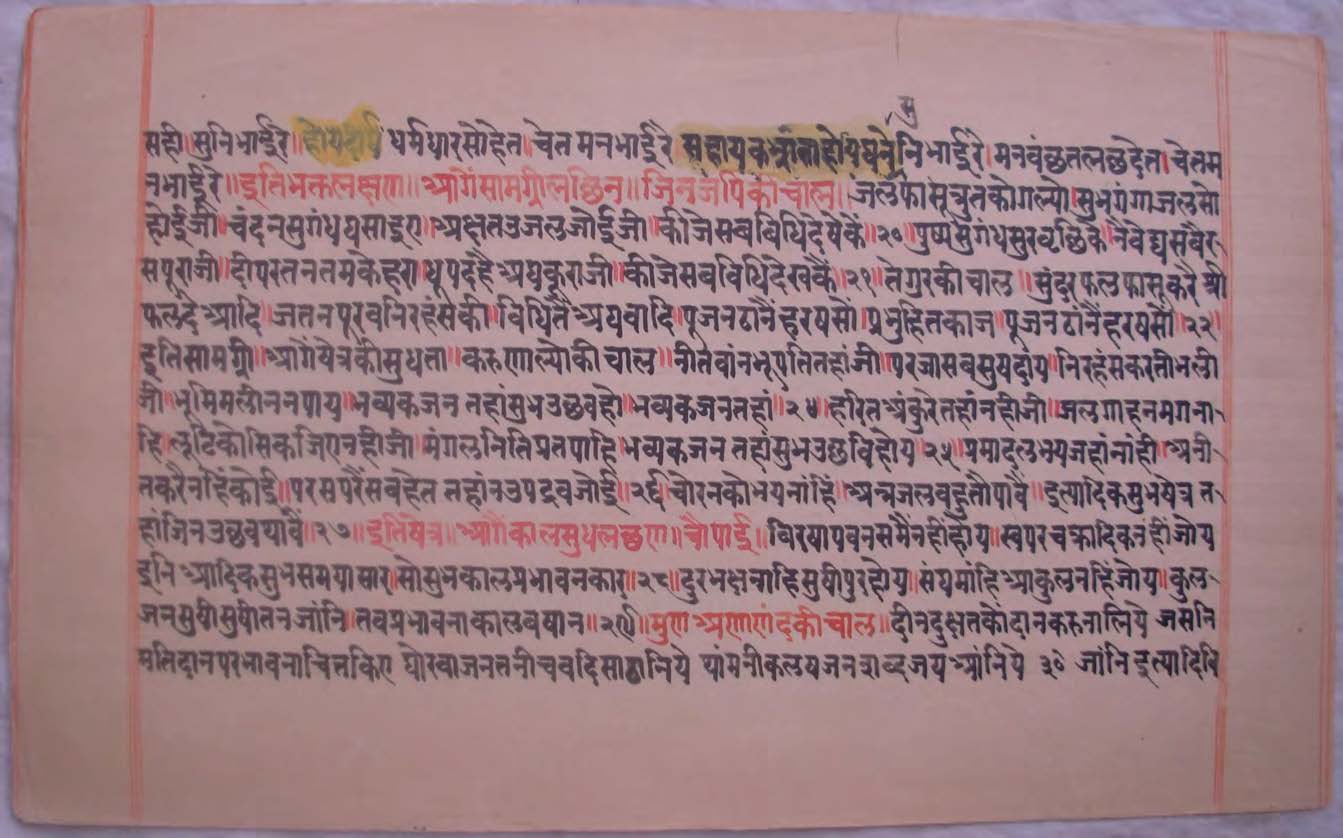 मु
सही॥सुनिभाईरे॥होयदार्य धर्मधारसोहेत॥चेत मनभाईरे सहायकभ्राताहोयघने।निभाईरे।मनवंछतलछदेत।चेतम
नभाईरे॥इतिभक्तलक्षण॥आगेंसामग्रीलछिन॥जिनजंपिकीचाल॥जलफासूत्रुतकोगल्यो।सुभगंगाजलसो
होईजी।चंदनसुगंधघसाइए।अक्षतउजलजोईजी॥कीजेसबबिधिदेषेकें॥२०॥पुष्पसुगंधसुरवृछिके।नैवेद्यसवैर-
सपूराजी॥दीपरतनतमकेहरा।धूपदहैअघकूराजी॥कीजेसबविधिदेखकैं॥२१॥तेगुरकीचाल॥सुंदरफलफासूकरैश्री
फलदेआदि।जतनपूरवनिरहंसकी॥विधितैंअघवादि॥पूजनठानैंहरषसौं।प्रभुहितकाज॥पूजनठांनैंहरषसौं॥२२॥
इतिसामग्री॥आगेंषेत्रकीसुधता॥करुणाल्योकीचाल॥नीतवांनभूपतितहांजी।परजासबसुषदाय॥निरहंसकरतीभली
जी।भूमिमलीननपाय॥भव्यकजन तहांसुभउछवहो॥भव्यकजनतहां॥२४॥हरितअंकुरेतहांनहीजी॥जलगाहनमगना-
हि॥लूटिकोसिकजिएनहीजी।मंगलनितिप्रतपाहि॥भव्यकजन तहांसुभउछविहोय॥२५॥प्रमादलभयजहांनांही॥अनी-
तकरैनहिंकोई॥परसपरैंसबहेत तहांनउपद्रवजोई॥२६॥चोरनकोभयनांहिं॥अन्नजलबहुतौपावै॥इत्यादिकसुभषेत्र त-
हांजिनउछवथावैं॥२७॥इतिषेत्र॥आगैंकालसुधलछण॥चौपाई॥बिरषापवनसमैंनहींहोय॥स्वपरचक्रादिकनंहींजोय
इनिआदिकसुभसमयासार।सोसुनकालप्रभावनकार॥२८॥दुरभक्षनाहिसुषीपुरहोय॥संघमांहिआकुलनहिंजोय॥कुल-
जनसुषीसुषीतनजांनि॥तबप्रभावनाकालबषान॥२९॥मुणअणणंदकीचाल॥दीनदुक्षतकोंदानकरुनालिये जसनि
मतिदानपरभावनाचितकिए घोरवाजनतनीचवदिसाठानिये यांमनीकलयजनशब्दजयआंनिये ३० जांनि इत्यादिबि